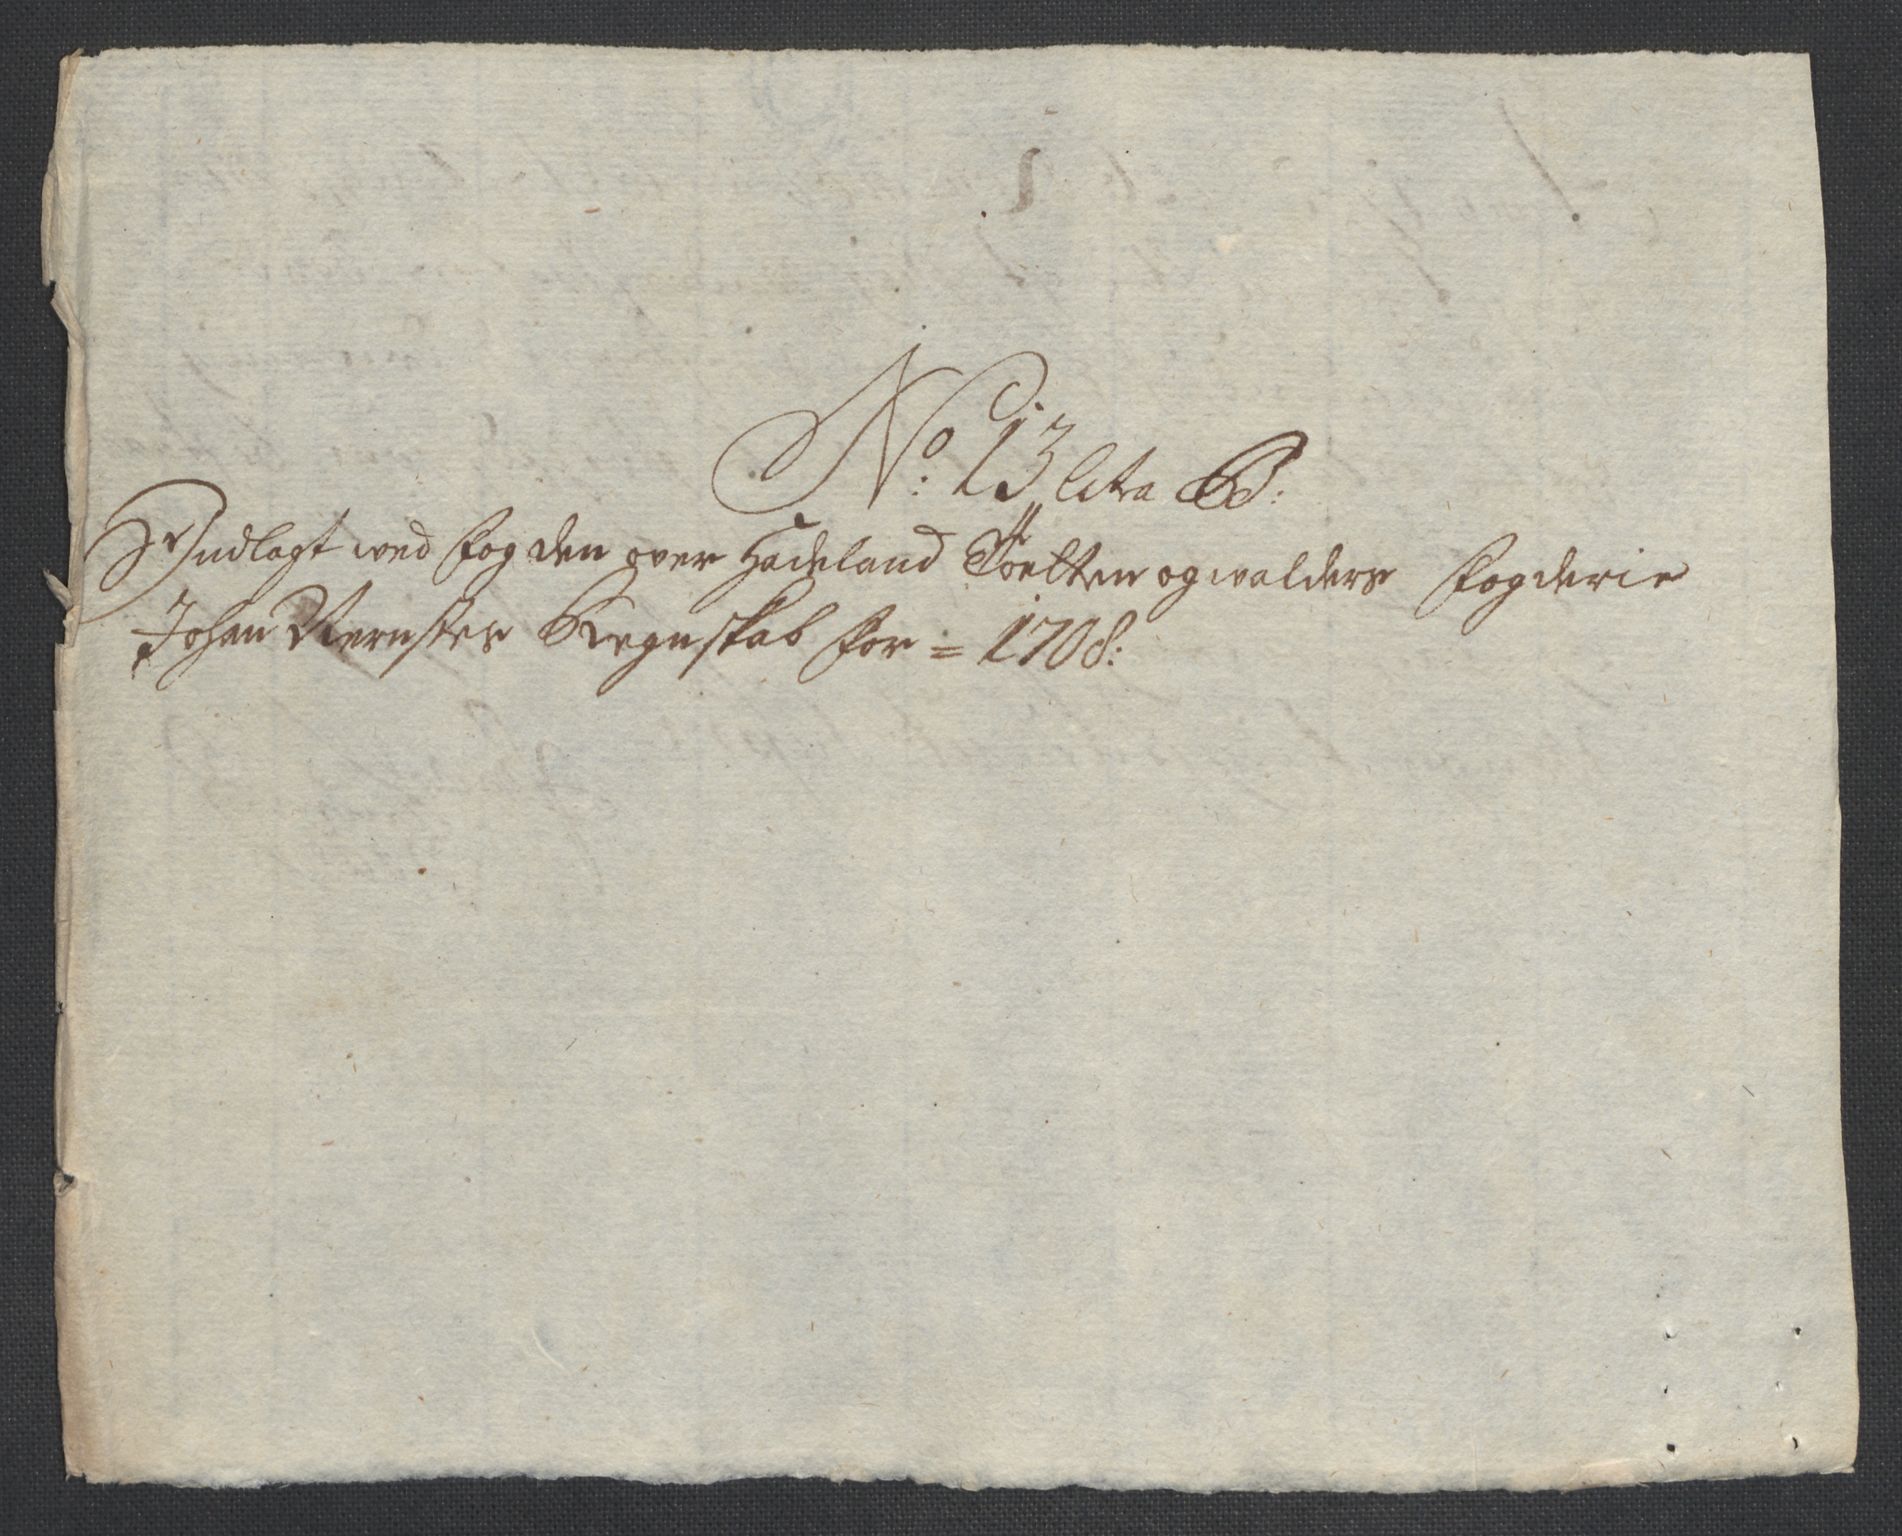 No: 13 litra B:
Indlagt wed fogden over Hadeland Toelten og walders fogderie
Johan Vernstes Regnskab for = 1708: